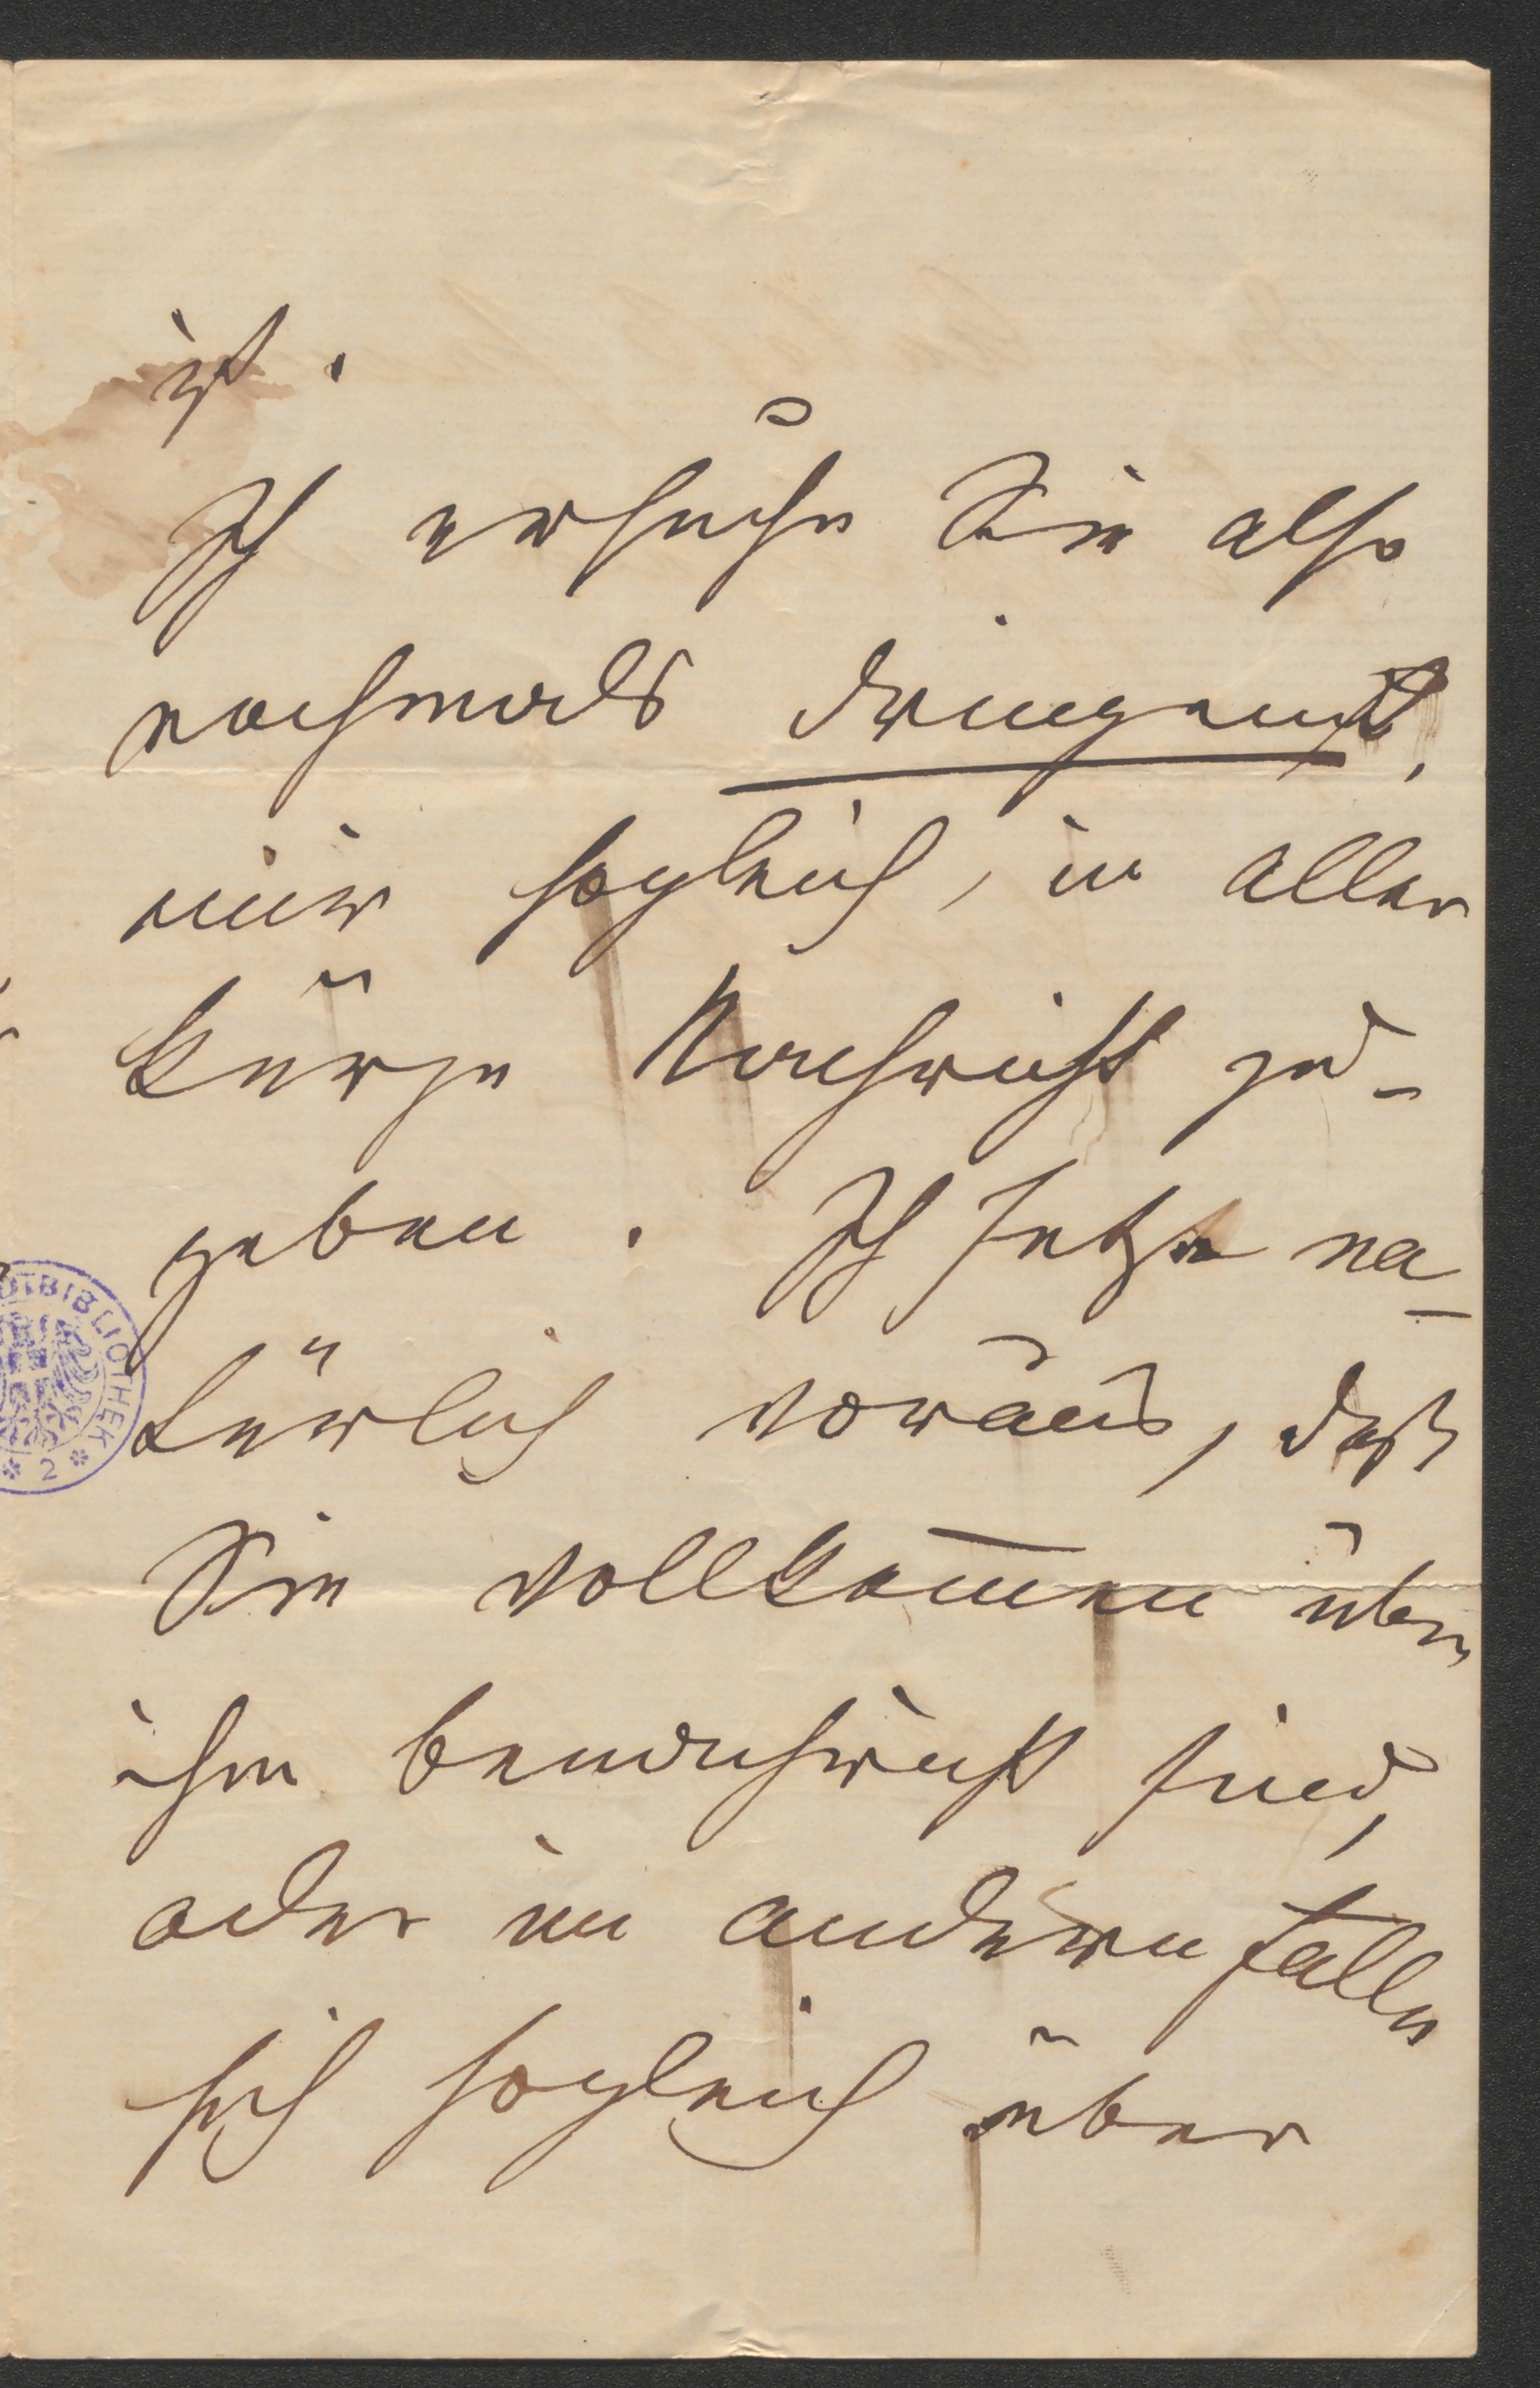 ist.
Ich ersuche Sie also
nochmals dringend,
mir sogleich, in aller
Kürze Nachricht zu
geben. Ich setze na-
türlich voraus, daß
Sie vollkom̅en über
ihn benachricht sind,
oder im andern Falle
sich sogleich über
BIBLIOTHEK
* 2 *